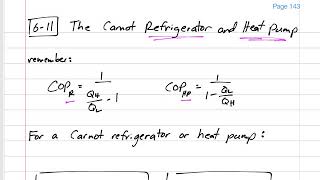 Page 143
6-11 The Carnot Refrigerator and Heat Pump
remember:
COP_R = 1 / (Q_H/Q_L - 1)    COP_HP = 1 / (1 - Q_L/Q_H)
For a Carnot refrigerator or heat pump: